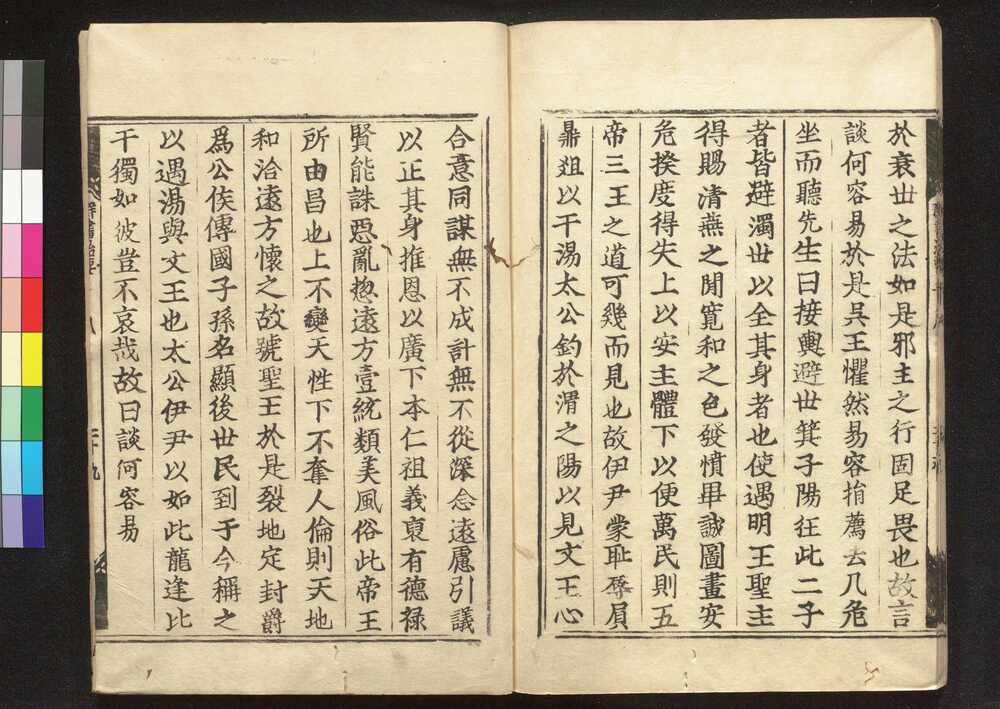 於衰世之法如是邪主之行固足畏也故言
談何容易於是吳王懼然易容捐薦去几危
坐而聽先生曰接輿避世箕子陽狂此二子
者皆避濁世以全其身者也使遇明王聖主
得賜清燕之閒寬和之色發憤畢誠圖畫安
危揆度得失上以安主體下以便萬民則五
帝三王之道可幾而見也故伊尹蒙耻辱負
鼎爼以干湯太公釣於渭之陽以見文王心
合意同謀無不成計無不從深念遠慮引議
以正其身推恩以廣下本仁祖義裒有德禄
賢能誅惡亂揔遠方壹統類美風俗此帝王
所由昌也上不變天性下不奪人倫則天地
和洽遠方懷之故號聖王於是裂地定封爵
爲公侯傳國子孫名顯後世民到于今稱之
以遇湯與文王也太公伊尹以如此龍逢比
干獨如彼豈不哀哉故曰談何容易